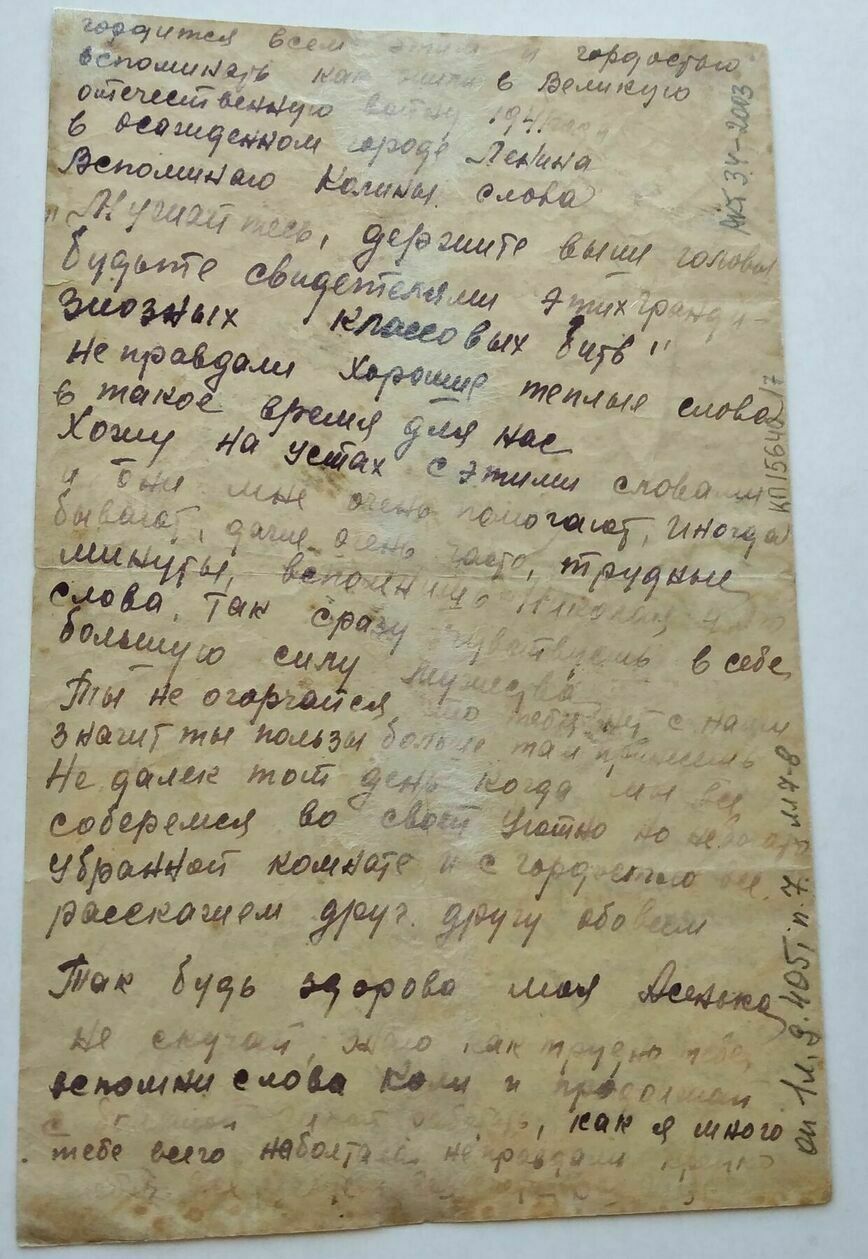 гордится всем этим и гордостью
вспоминать как жили в Великую
отечественную войну 1941 году
в осажденном городе Ленина
Вспоминаю Колины слова
"Мужайтесь, держите выше головы
будьте свидетелями этих гранди-
знозных классовых битв"
не правдали хорошие теплые слова
в такое время для нас
Хожу на устах с этими словами
и они мне очень помогают, иногда
бывают, даже очень часто, трудные
минуты, вспомнишь Николая
слова, так сразу чувствуешь в себе
большую силу мужества
Ты не огорчайся что тебя нет с нами
значит ты пользы больше там принесешь
Не далек тот день когда мы все
соберемся во своей уютно но небогато
убранной комнате и с гордостью все
расскажем друг другу обовсем
Так будь здорова моя Асенька
не скучай, знаю как трудно тебе,
вспомни слова Коли и продолжай
как я много
тебе всего наболтала неправдали
Акт 34-2003
КП156421/7
оп 1л, д. 405, п. 7. л.л 7-8